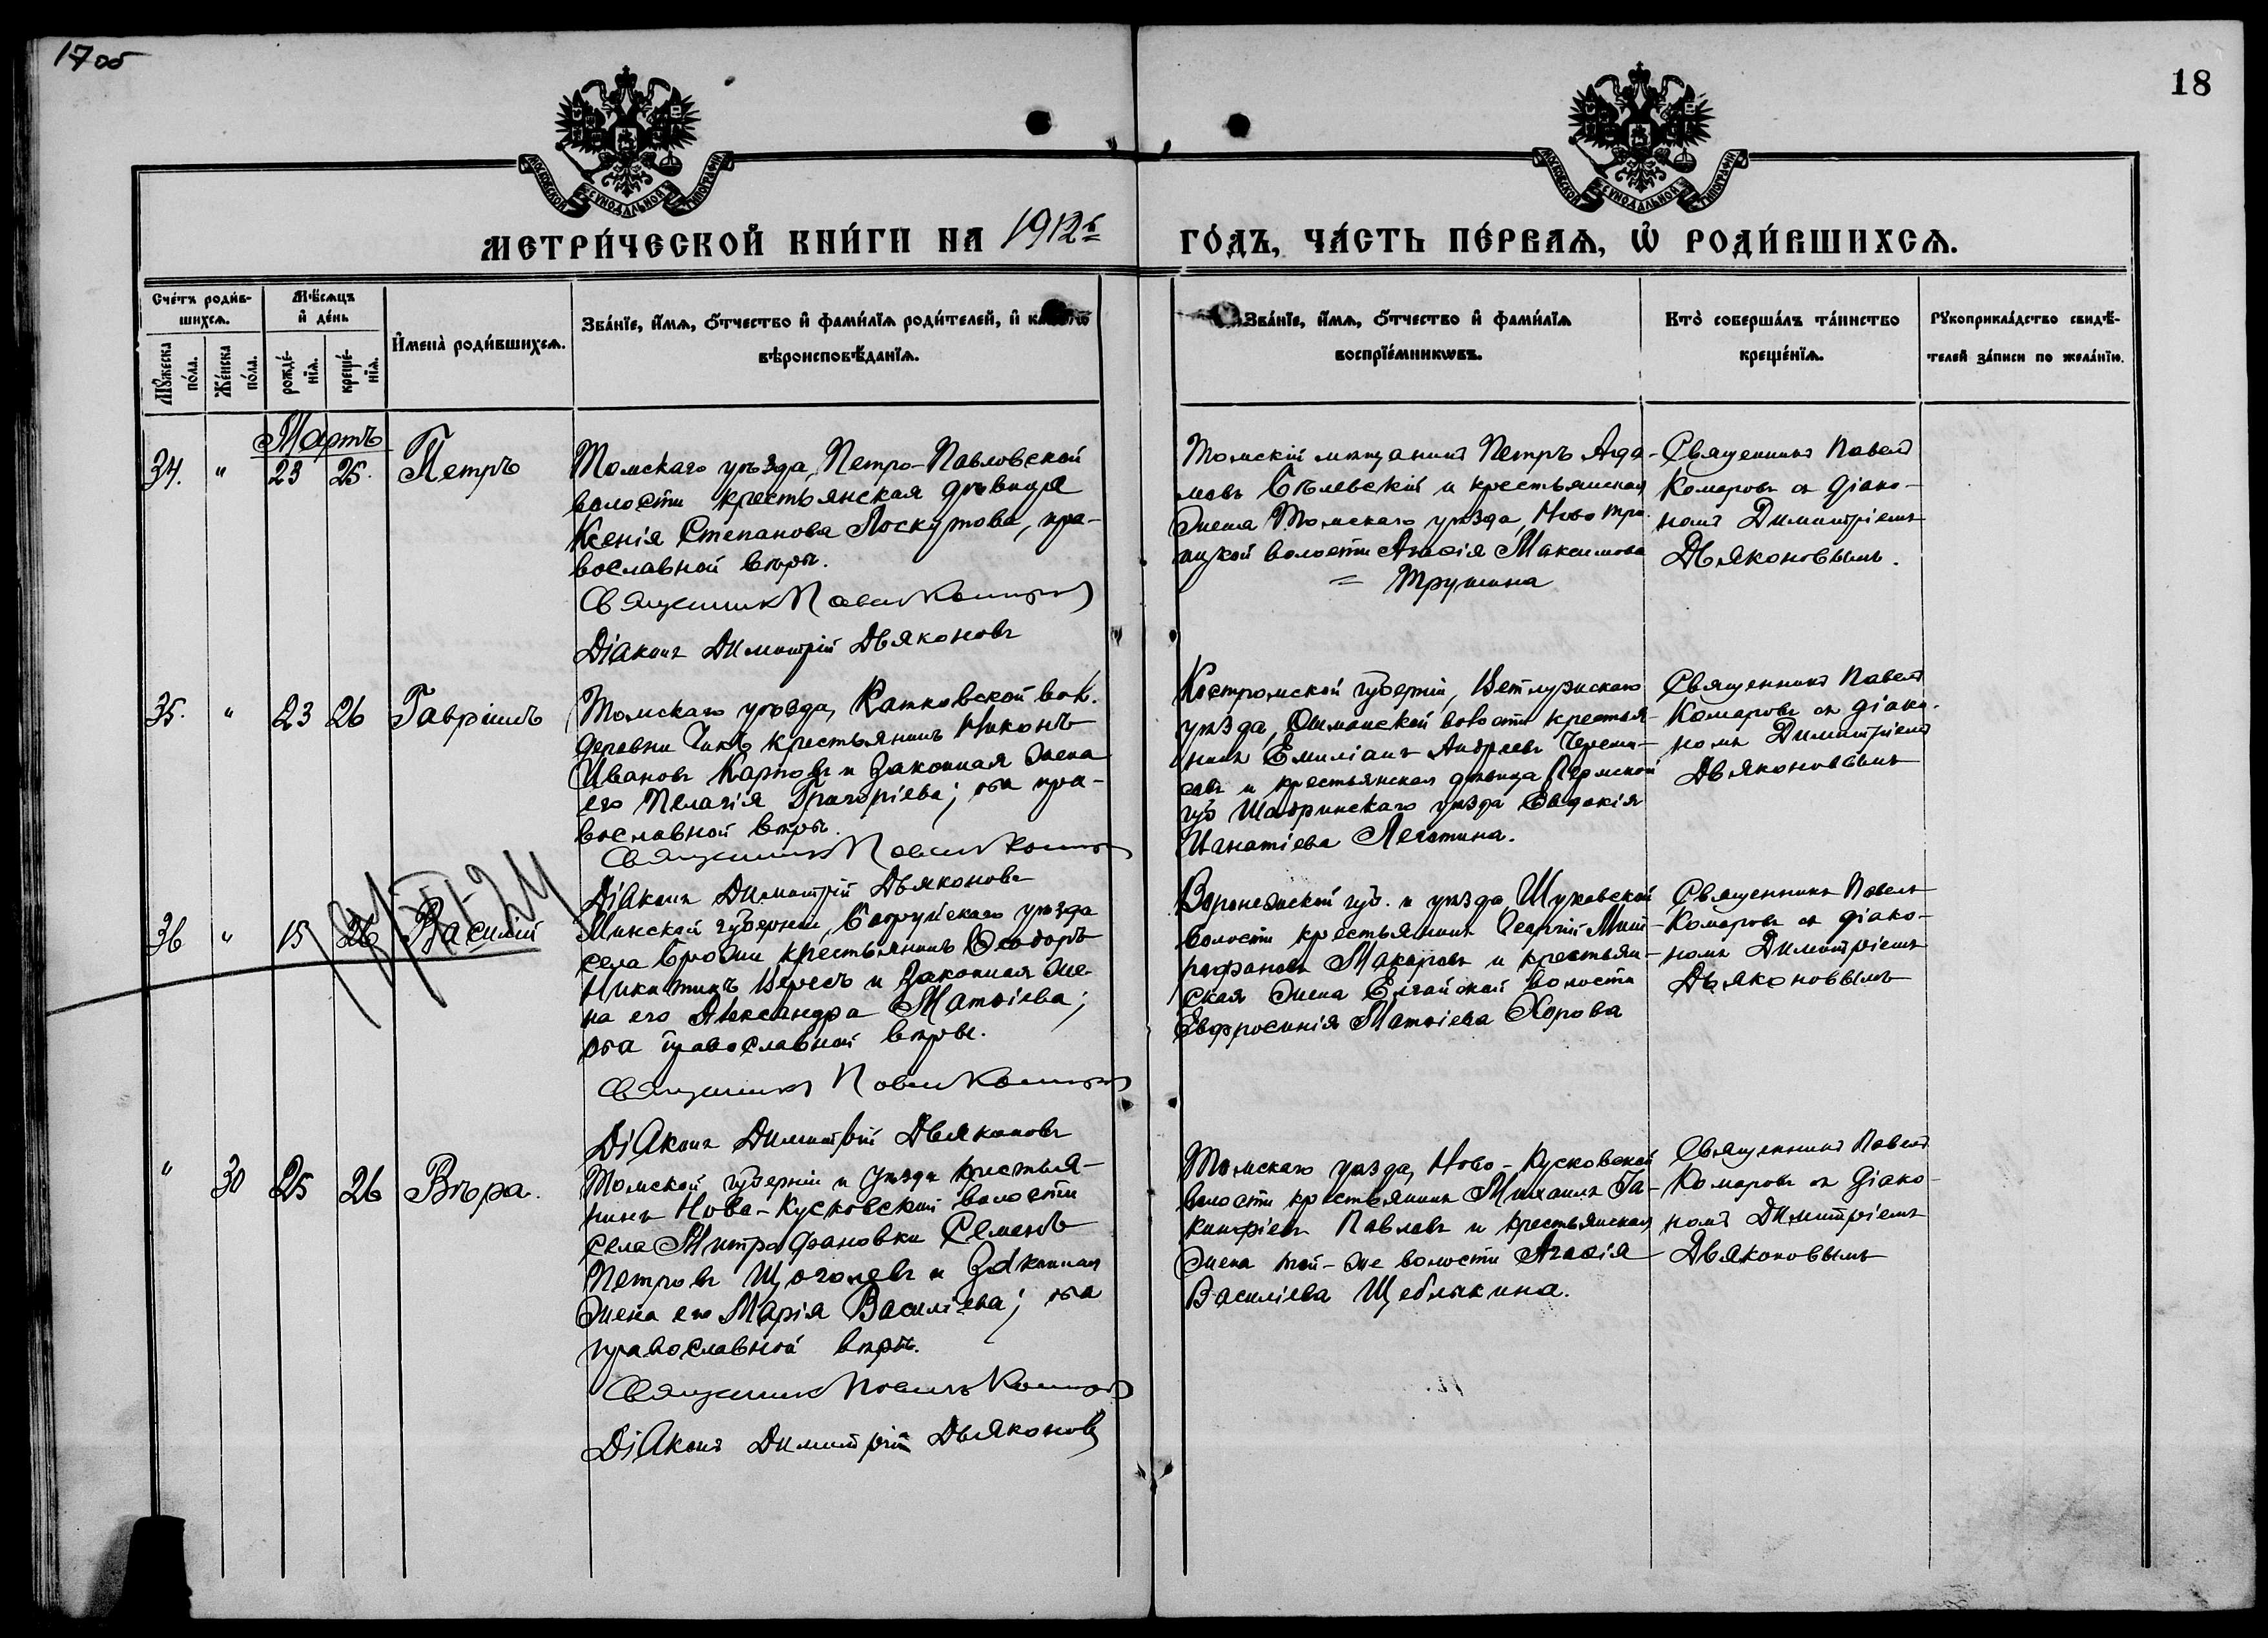 17 об
18
МОСКОВСКОЙ СѴНОДАЛЬНОЙ ТИПОГРАФІИ
МОСКОВСКОЙ СѴНОДАЛЬНОЙ ТИПОГРАФІИ
МЕТРИ́ЧЕСКОЙ КНИ́ГИ НА 1912 г. ГО́ДЪ, ЧА́СТЬ ПЕ́РВАѦ, Ѡ РОДИ́ВШИХСѦ.
Сче́тъ роди́в-
шихсѧ.
Мꙋ́жеска
по́ла.
Же́нска
по́ла.
Мѣ́сѧцъ
и де́нь
рожде́-
нїѧ.
креще́-
нїѧ.
Имена̀ роди́вшихсѧ.
Зва́нїе, и́мѧ, ѻ́тчество и фами́лїѧ роди́телей, и
вѣроисповѣ́данїѧ.
Зва́нїе, и́мѧ, ѻ́тчество и фами́лїѧ
воспрїе́мникѡвъ.
Кто̀ соверша́лъ та́инство
креще́нїѧ.
Рꙋкоприкла́дство свидѣ́-
телей за́писи по жела́нїю.
Мартъ
34. " 23 25. Петръ
Томскаго уѣзда, Петро-Павловской
волости крестьянская дѣвица
Ксенія Степанова Лоскутова, пра-
вославной вѣры.
Священникъ Павелъ Комаровъ
Діаконъ Димитрій Дьяконовъ
Томскій мѣщанинъ Петръ Ада-
мовъ Бѣлевскій и крестьянская
жена Томскаго уѣзда, Ново Тро-
ицкой волости Агаѳія Максимова
= Трушина
Священникъ Павелъ
Комаровъ съ діако-
номъ Димитріемъ
Дьяконовымъ.
35. " 23 26 Гавріилъ
Томскаго уѣзда, вол.
деревни крестьянинъ Никонъ
Ивановъ Карповъ и законная жена
его Пелагія Григоріева; оба пра-
вославной вѣры.
Священникъ Павелъ Комаровъ
Діаконъ Димитрій Дьяконовъ
Костромской губерніи, Ветлужскаго
уѣзда, волости крестья-
нинъ Емиліанъ Андреевъ Череми-
совъ и крестьянская дѣвица Пермской
губ Шадринскаго уѣзда Евдокія
Игнатіева
Священникъ Павелъ
Комаровъ съ діако-
номъ Димитріемъ
Дьяконовымъ
36 " 15 26 Василій
Минской губерніи, Бобруйскаго уѣзда
села Брожи крестьянинъ Ѳеодоръ
Никитинъ Вересъ и законная же-
на его Александра Матѳіева;
оба православной вѣры.
Священникъ Павелъ Комаровъ
Діаконъ Димитрій Дьяконовъ
Воронежской губ. и уѣзда,
волости крестьянинъ Георгій Мит-
рофановъ Макаровъ и крестьян-
ская жена Елгайской волости
Евфросинія Матѳіева Хорова
Священникъ Павелъ
Комаровъ съ діако-
номъ Димитріемъ
Дьяконовымъ
" 30 25 26 Вѣра.
Томской губерніи и уѣзда крестья-
нинъ Ново-Кусковской волости
села Митрофановки Семенъ
Петровъ Щоголевъ и законная
жена его Марія Василіева; оба
православной вѣры.
Священникъ Павелъ Комаровъ
Діаконъ Димитрій Дьяконовъ
Томскаго уѣзда, Ново-Кусковской
волости крестьянинъ Михаилъ
Павловъ и крестьянская
жена той-же волости Агаѳія
Василіева Щеблыкина.
Священникъ Павелъ
Комаровъ съ діако-
номъ Димитріемъ
Дьяконовымъ